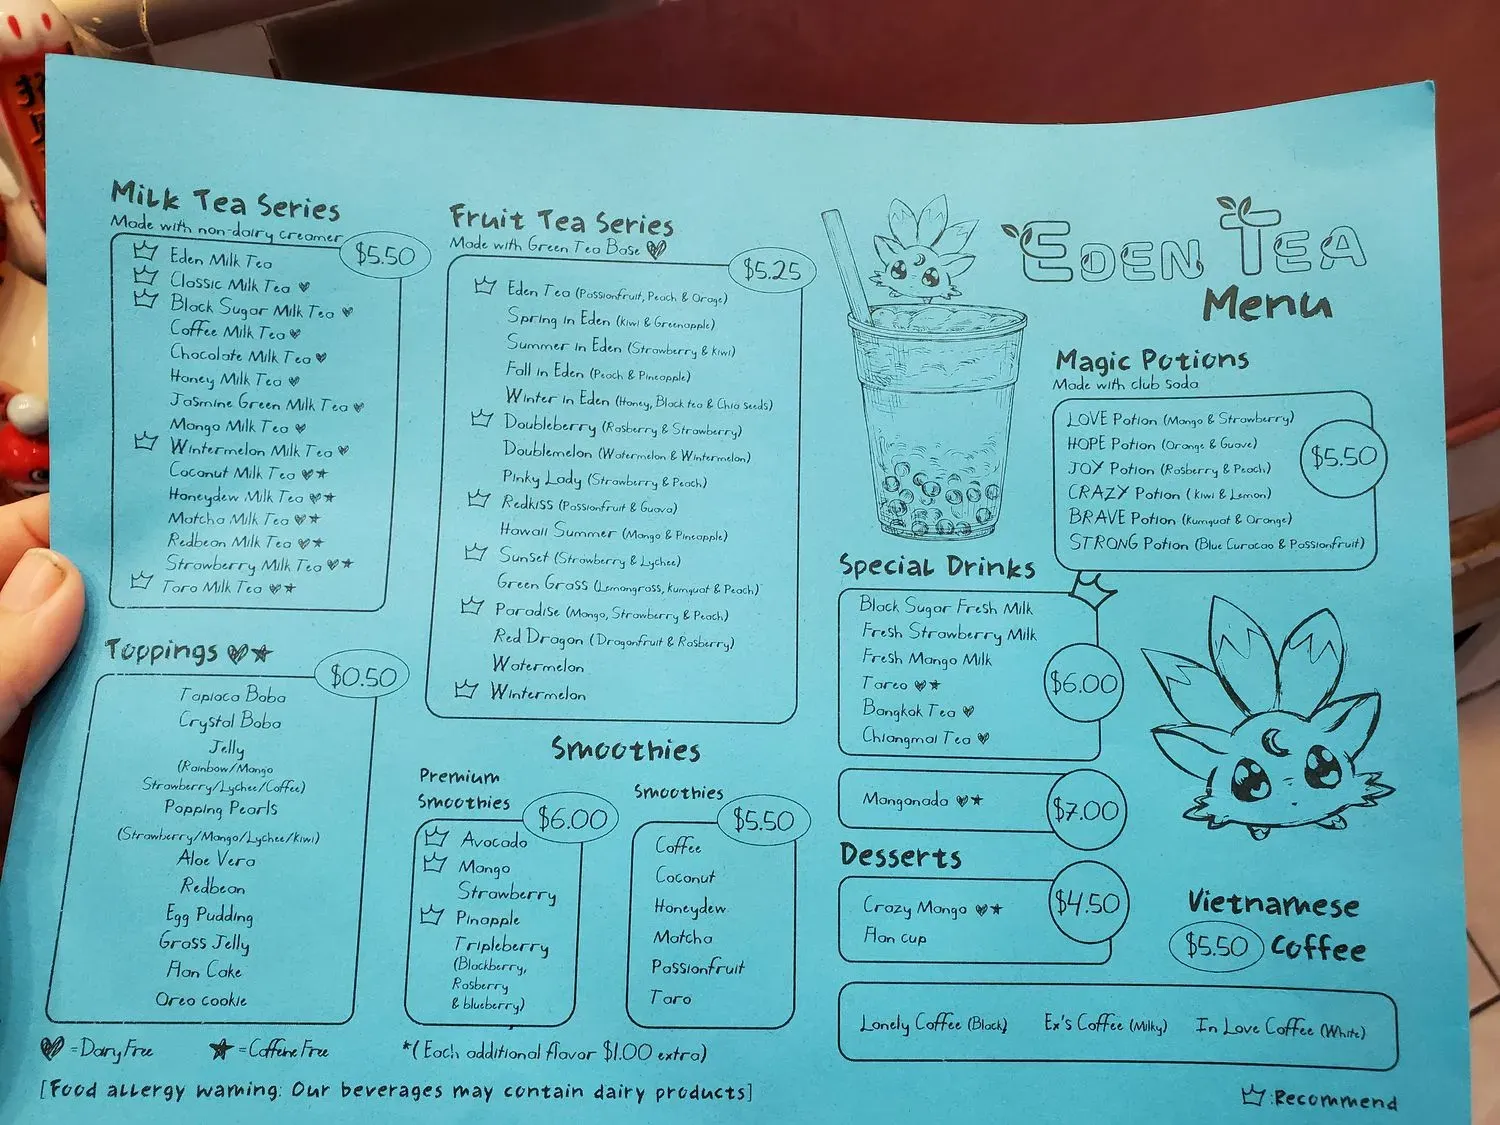 Milk Tea Series
Made with non-dairy creamer
$5.50
Eden Milk Tea
Classic Milk Tea
Black Sugar Milk Tea
Coffee Milk Tea
Chocolate Milk Tea
Honey Milk Tea
Jasmine Green Milk Tea
Mango Milk Tea
Wintermelon Milk Tea
Coconut Milk Tea
Honeydew Milk Tea
Matcha Milk Tea
Redbean Milk Tea
Strawberry Milk Tea
Taro Milk Tea
Toppings
$0.50
Tapioca Boba
Crystal Boba
Jelly
(Rainbow/Mango
Strawberry/Lychee/Coffee)
Popping Pearls
(Strawberry/Mango/Lychee/kiwi)
Aloe Vera
Redbean
Egg Pudding
Grass Jelly
Flan Cake
Oreo cookie
Fruit Tea Series
Made with Green Tea Base
$5.25
Eden Tea (Passionfruit, Peach & Orage)
Spring in Eden (kiwi & Greenapple)
Summer in Eden (Strawberry & kiwi)
Fall in Eden (Peach & Pineapple)
Winter in Eden (Honey, Black tea & Chia seeds)
Doubleberry (Rasberry & Strawberry)
Doublemelon (Watermelon & Wintermelon)
Pinky Lady (Strawberry & Peach)
Redkiss (Passionfruit & Guava)
Hawaii Summer (Mango & Pineapple)
Sunset (Strawberry & Lychee)
Green Grass (Lemongrass, kumquat & Peach)
Paradise (Mango, Strawberry & Peach)
Red Dragon (Dragonfruit & Rasberry)
Watermelon
Wintermelon
Smoothies
Premium
Smoothies
$6.00
Avocado
Mango
Strawberry
Pinapple
Tripleberry
(Blackberry,
Rasberry
& blueberry)
Smoothies
$5.50
Coffee
Coconut
Honeydew
Matcha
Passionfruit
Taro
EDEN TEA
Menu
Magic Potions
Made with club soda
LOVE Potion (Mango & Strawberry)
HOPE Potion (Orange & Guave)
JOY Potion (Rasberry & Peach)
CRAZY Potion (kiwi & Lemon)
BRAVE Potion (kumquat & Orange)
STRONG Potion (Blue Curacao & Passionfruit)
$5.50
Special Drinks
Black Sugar Fresh Milk
Fresh Strawberry Milk
Fresh Mango Milk
Tareo
Bangkok Tea
Chiangmai Tea
$6.00
Mangonada
$7.00
Desserts
Crazy Mango
Flan cup
$4.50
Vietnamese
$5.50 Coffee
Lonely Coffee (Black) Ex's Coffee (Milky) In Love Coffee (White)
=Dairy Free =Caffeine Free *(Each additional flavor $1.00 extra)
[Food allergy warning: Our beverages may contain dairy products]
:Recommend